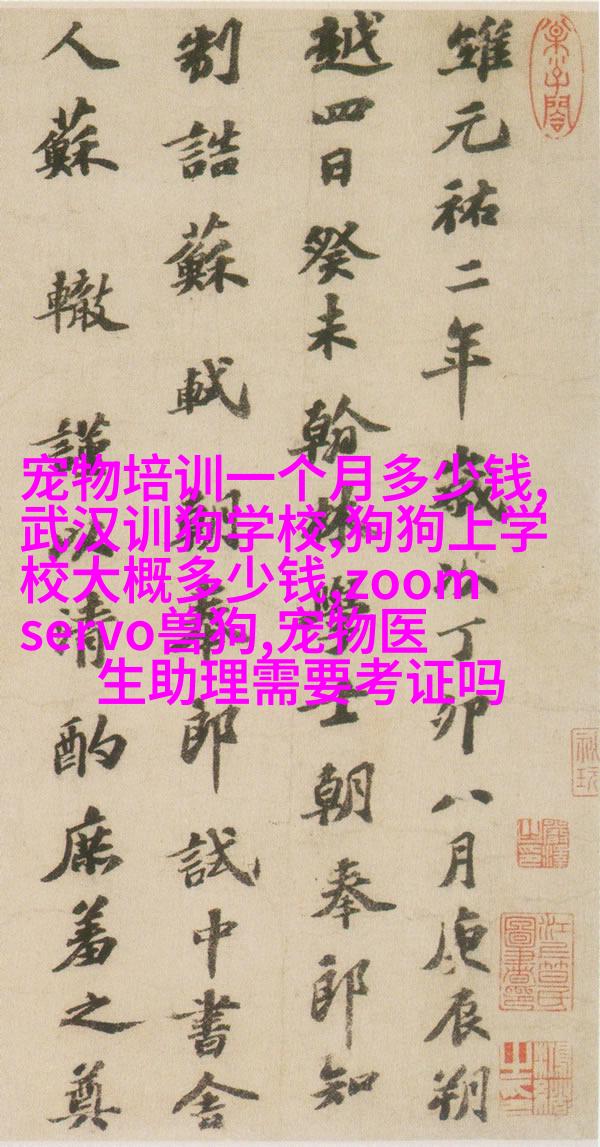 維元祐二年歲次丁卯八月庚辰朔
越四日癸未翰林學士朝奉郎知
制誥蘇軾朝奉郎試中書舍
人蘇轍謹以清酌庶羞之奠
宠物培训一个月多少钱,
武汉训狗学校,狗狗上学
校大概多少钱,zoom
servo兽狗,宠物医
生助理需要考证吗